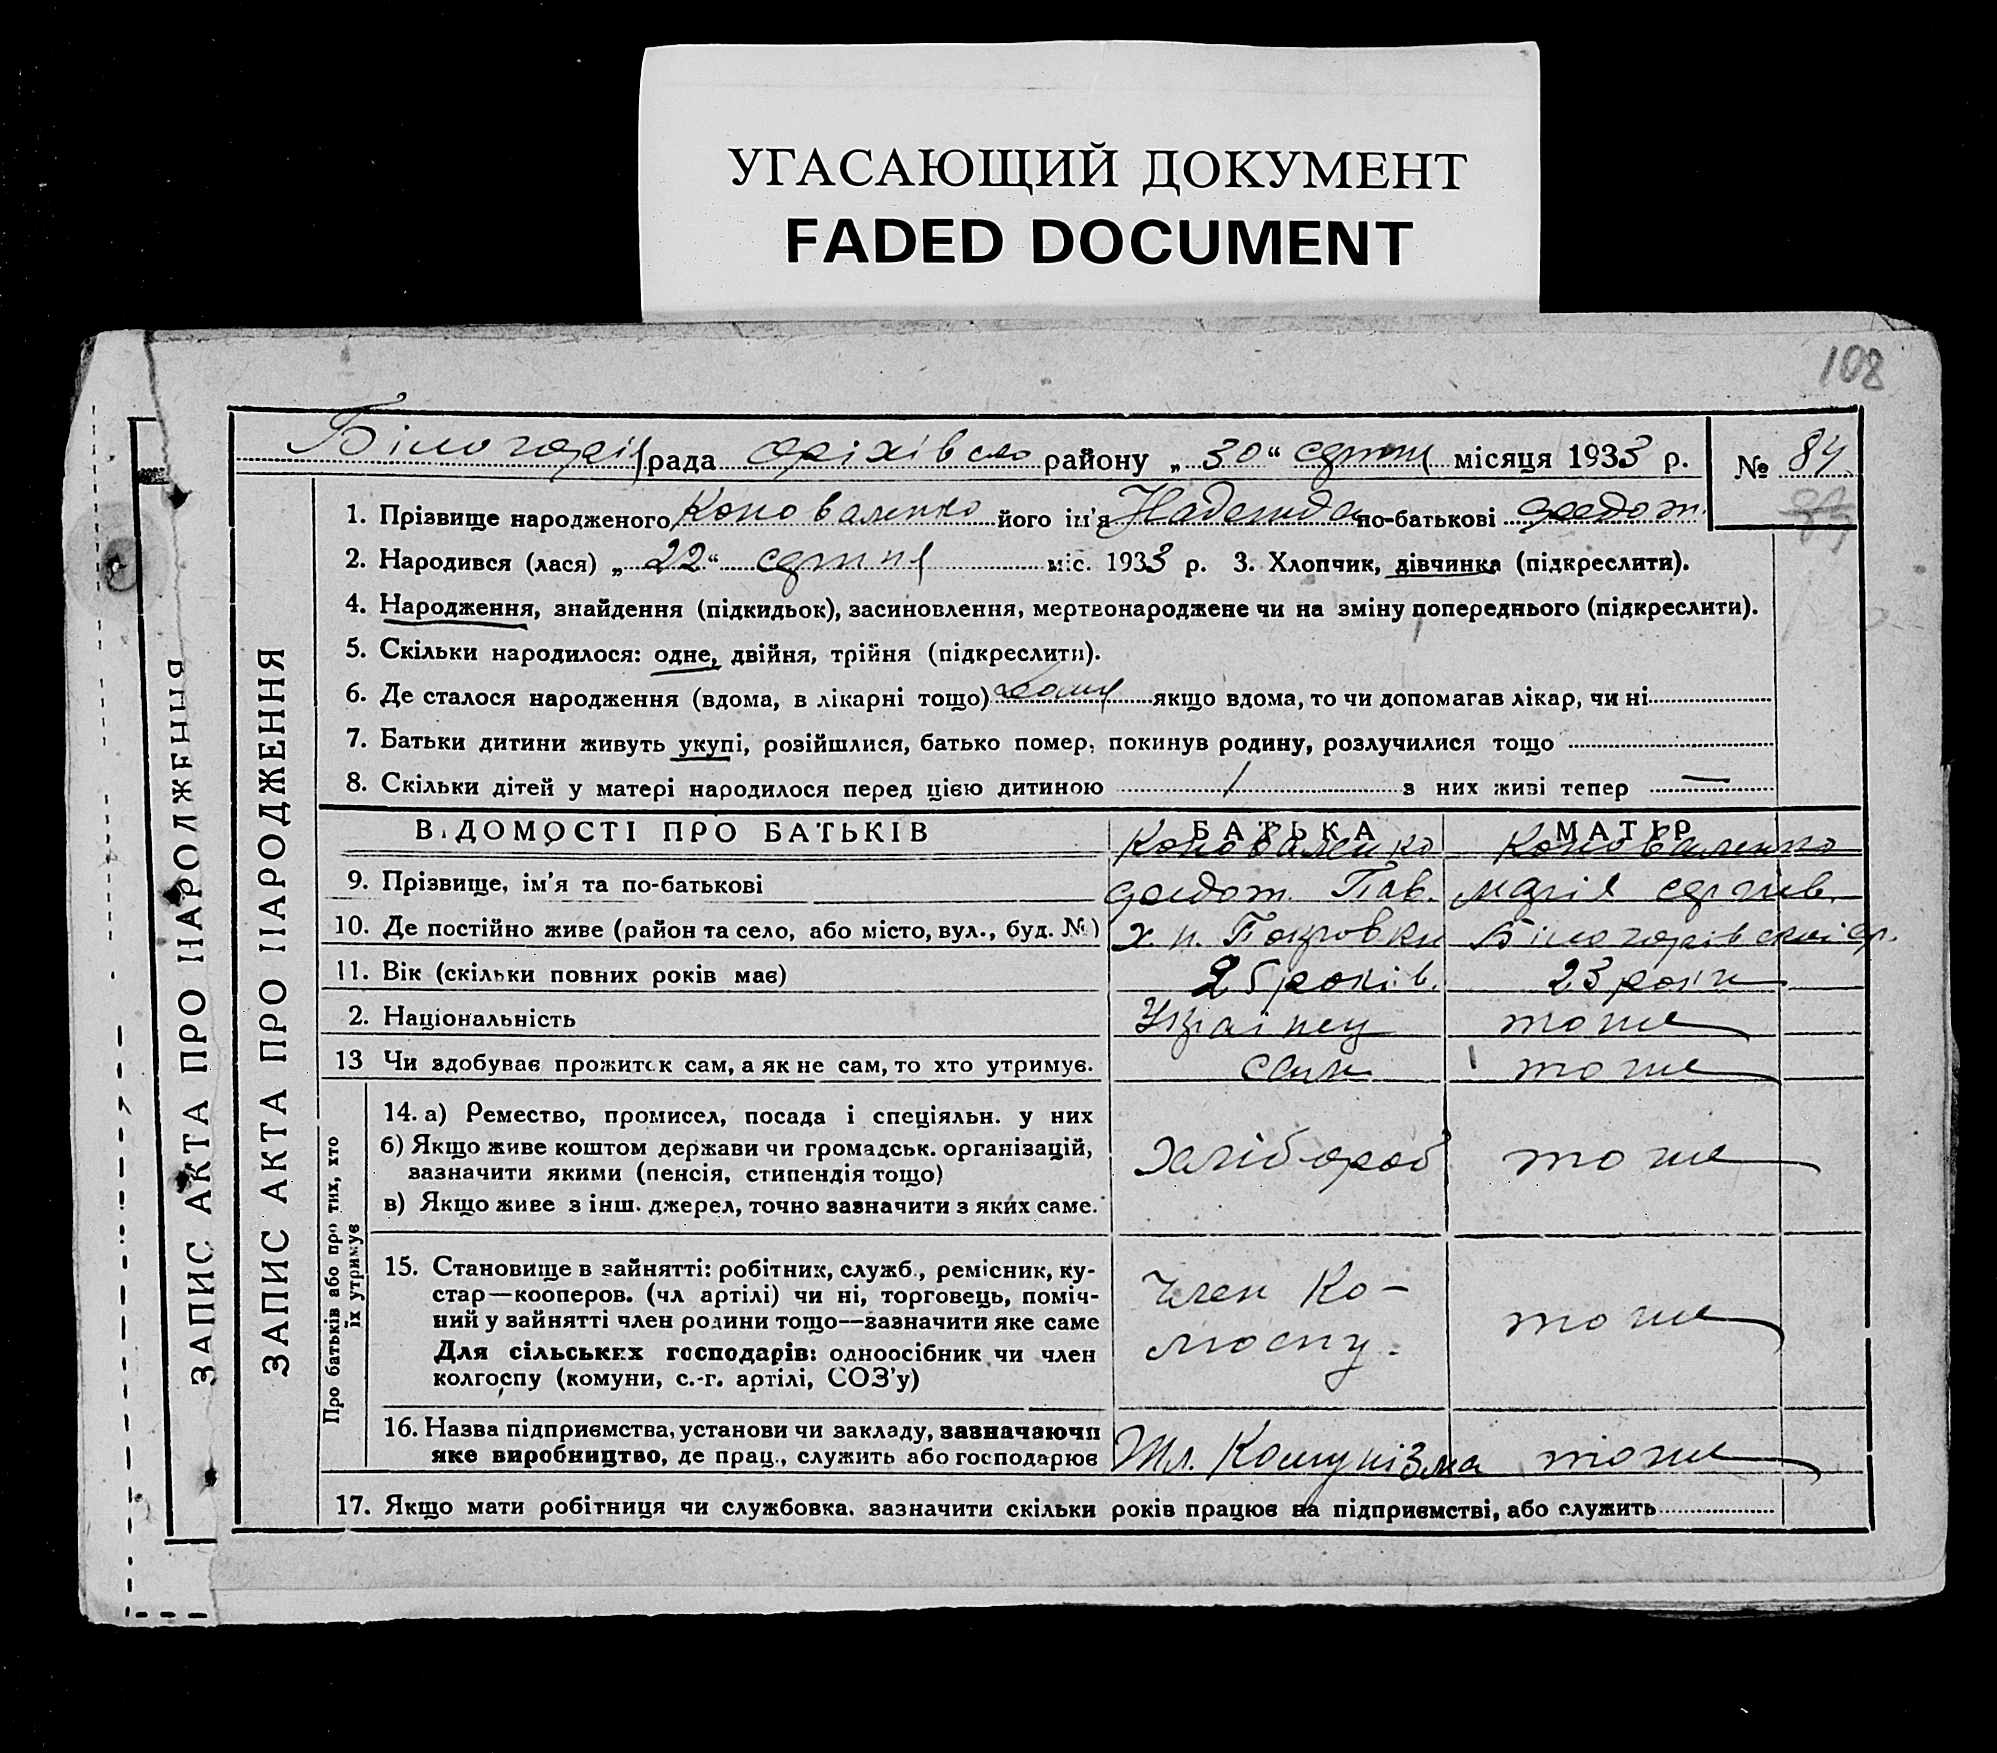 УГАСАЮЩИЙ ДОКУМЕНТ
FADED DOCUMENT
108
рада оріхівсько району „30“ серпня місяця 1933 р. № 84
1. Прізвище народженого Коноваленко його ім'я Надежда по-батькові Федот.
2. Народився (лася) „22“ серпня міс. 1933 р. 3. Хлопчик, дівчинка (підкреслити).
4. Народження, знайдення (підкидьок), засиновлення, мертвонароджене чи на зміну попереднього (підкреслити).
5. Скільки народилося: одне, двійня, трійня (підкреслити).
6. Де сталося народження (вдома, в лікарні тощо) якщо вдома, то чи допомагав лікар, чи ні
7. Батьки дитини живуть укупі, розійшлися, батько помер, покинув родину, розлучилися тощо
8. Скільки дітей у матері народилося перед цією дитиною / з них живі тепер —
ВІДОМОСТІ ПРО БАТЬКІВ БАТЬКА МАТІР
Коноваленко Коноваленко
9. Прізвище, ім'я та по-батькові Федот. Пав. Марія Сергиев.
10. Де постійно живе (район та село, або місто, вул., буд. №) х. н. Покровки Білогорівської ср.
11. Вік (скільки повних років має) 25 років. 23 роки
2. Національність Українец тоже
13 Чи здобуває прожиток сам, а як не сам, то хто утримує. сам тоже
Про батьків або про тих, хто
їх утримує
14. а) Ремество, промисел, посада і спеціяльн. у них
б) Якщо живе коштом держави чи громадськ. організацій,
вазначити якими (пенсія, стипендія тощо)
в) Якщо живе з інш. джерел, точно зазначити з яких саме.
Хлібороб тоже
15. Становище в зайнятті: робітник, служб., ремісник, ку-
стар—кооперов. (чл артілі) чи ні, торговець, поміч-
ний у зайнятті член родини тощо—зазначити яке саме
Для сільських господарів: одноосібник чи член
колгоспу (комуни, с.-г. артілі, СОЗ'у)
Член Ко-
лгоспу. тоже
16. Назва підприємства, установи чи закладу, зазначаючи
яке виробництво, де прац., служить або господарює
Шл. Комунізма тоже
17. Якщо мати робітниця чи службовка. зазначити скільки років працює на підприємстві, або служить
ЗАПИС АКТА ПРО НАРОДЖЕННЯ
ЗАПИС АКТА ПРО НАРОДЖЕННЯ